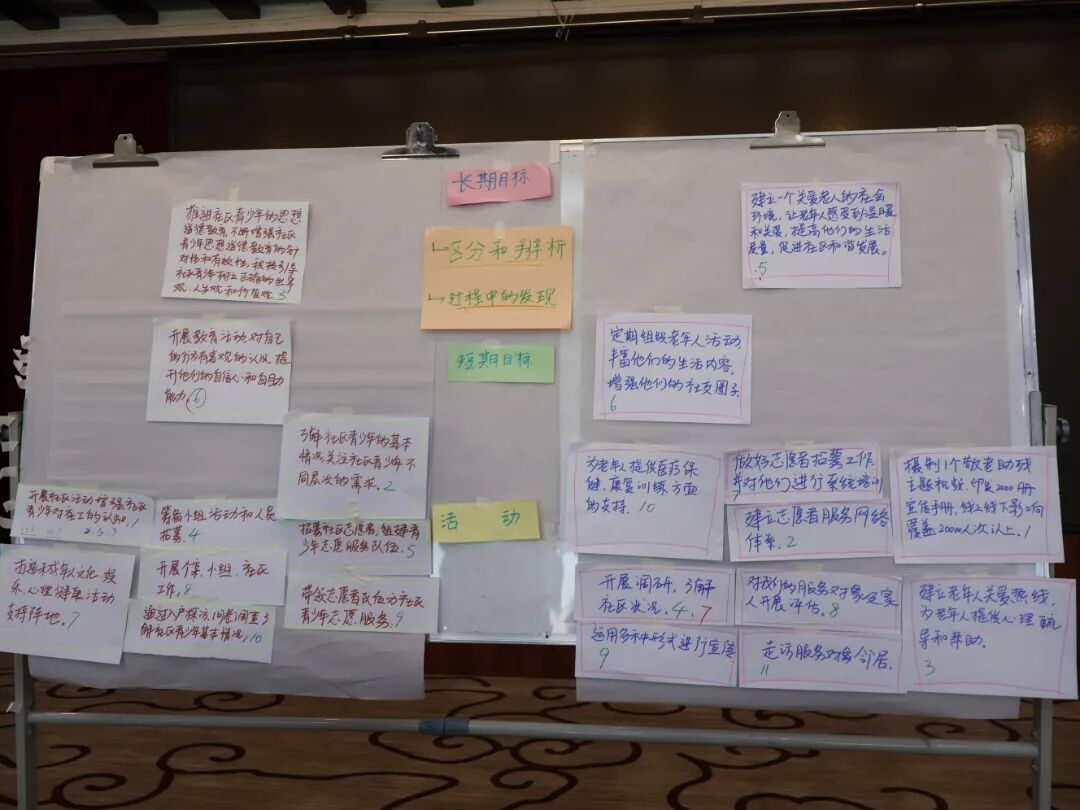 长期目标
区分和辨析
过程中的发现
短期目标
活 动
推进社区青少年的思想
道德教育,不断增强社区
青少年思想道德教育的针
对性和有效性,积极引导
社区青少年树立正确的世界
观、人生观和价值观 5
开展教育活动,对自己
的行为有客观的认识,提
升他们的自信心和自助
能力 6
了解社区青少年的基本
情况关注社区青少年不
同层次的需求。2
开展社区活动增强社区
青少年对社工的认知。1
2.6.7
筹备小组活动和人员
招募。4
招募社区志愿者,组建青
少年志愿服务队伍。5
打造未成年人文化、娱
乐、心理健康活动
支持阵地。7
开展个案、小组、社区
工作。8
通过入户探访、问卷调查了
解社区青少年基本情况。10
带领志愿者队伍为社区
青少年志愿服务。9
建立一个关爱老人的社会
环境,让老年人感受到温暖
和关爱,提高他们的生活
质量,促进社区和谐发展。
5
定期组织老年人活动
丰富他们的生活内容,
增强他们的社交圈子。
6
为老年人提供医疗保
健、康复训练方面
的支持。10
做好志愿者招募工作
并对他们进行系统培训
建立志愿者服务网络
体系。2
摄制1个敬老助残
主题视频,印发2000册
宣传手册,线上线下影响
覆盖20000人次以上。1
开展调研,了解
社区状况。4、7
对我们的服务对象及家
人开展评估。8
建立老年人关爱热线,
为老年人提供心理疏
导和帮助。
3
运用多种形式进行宣传
9
走访服务对象邻居。
11